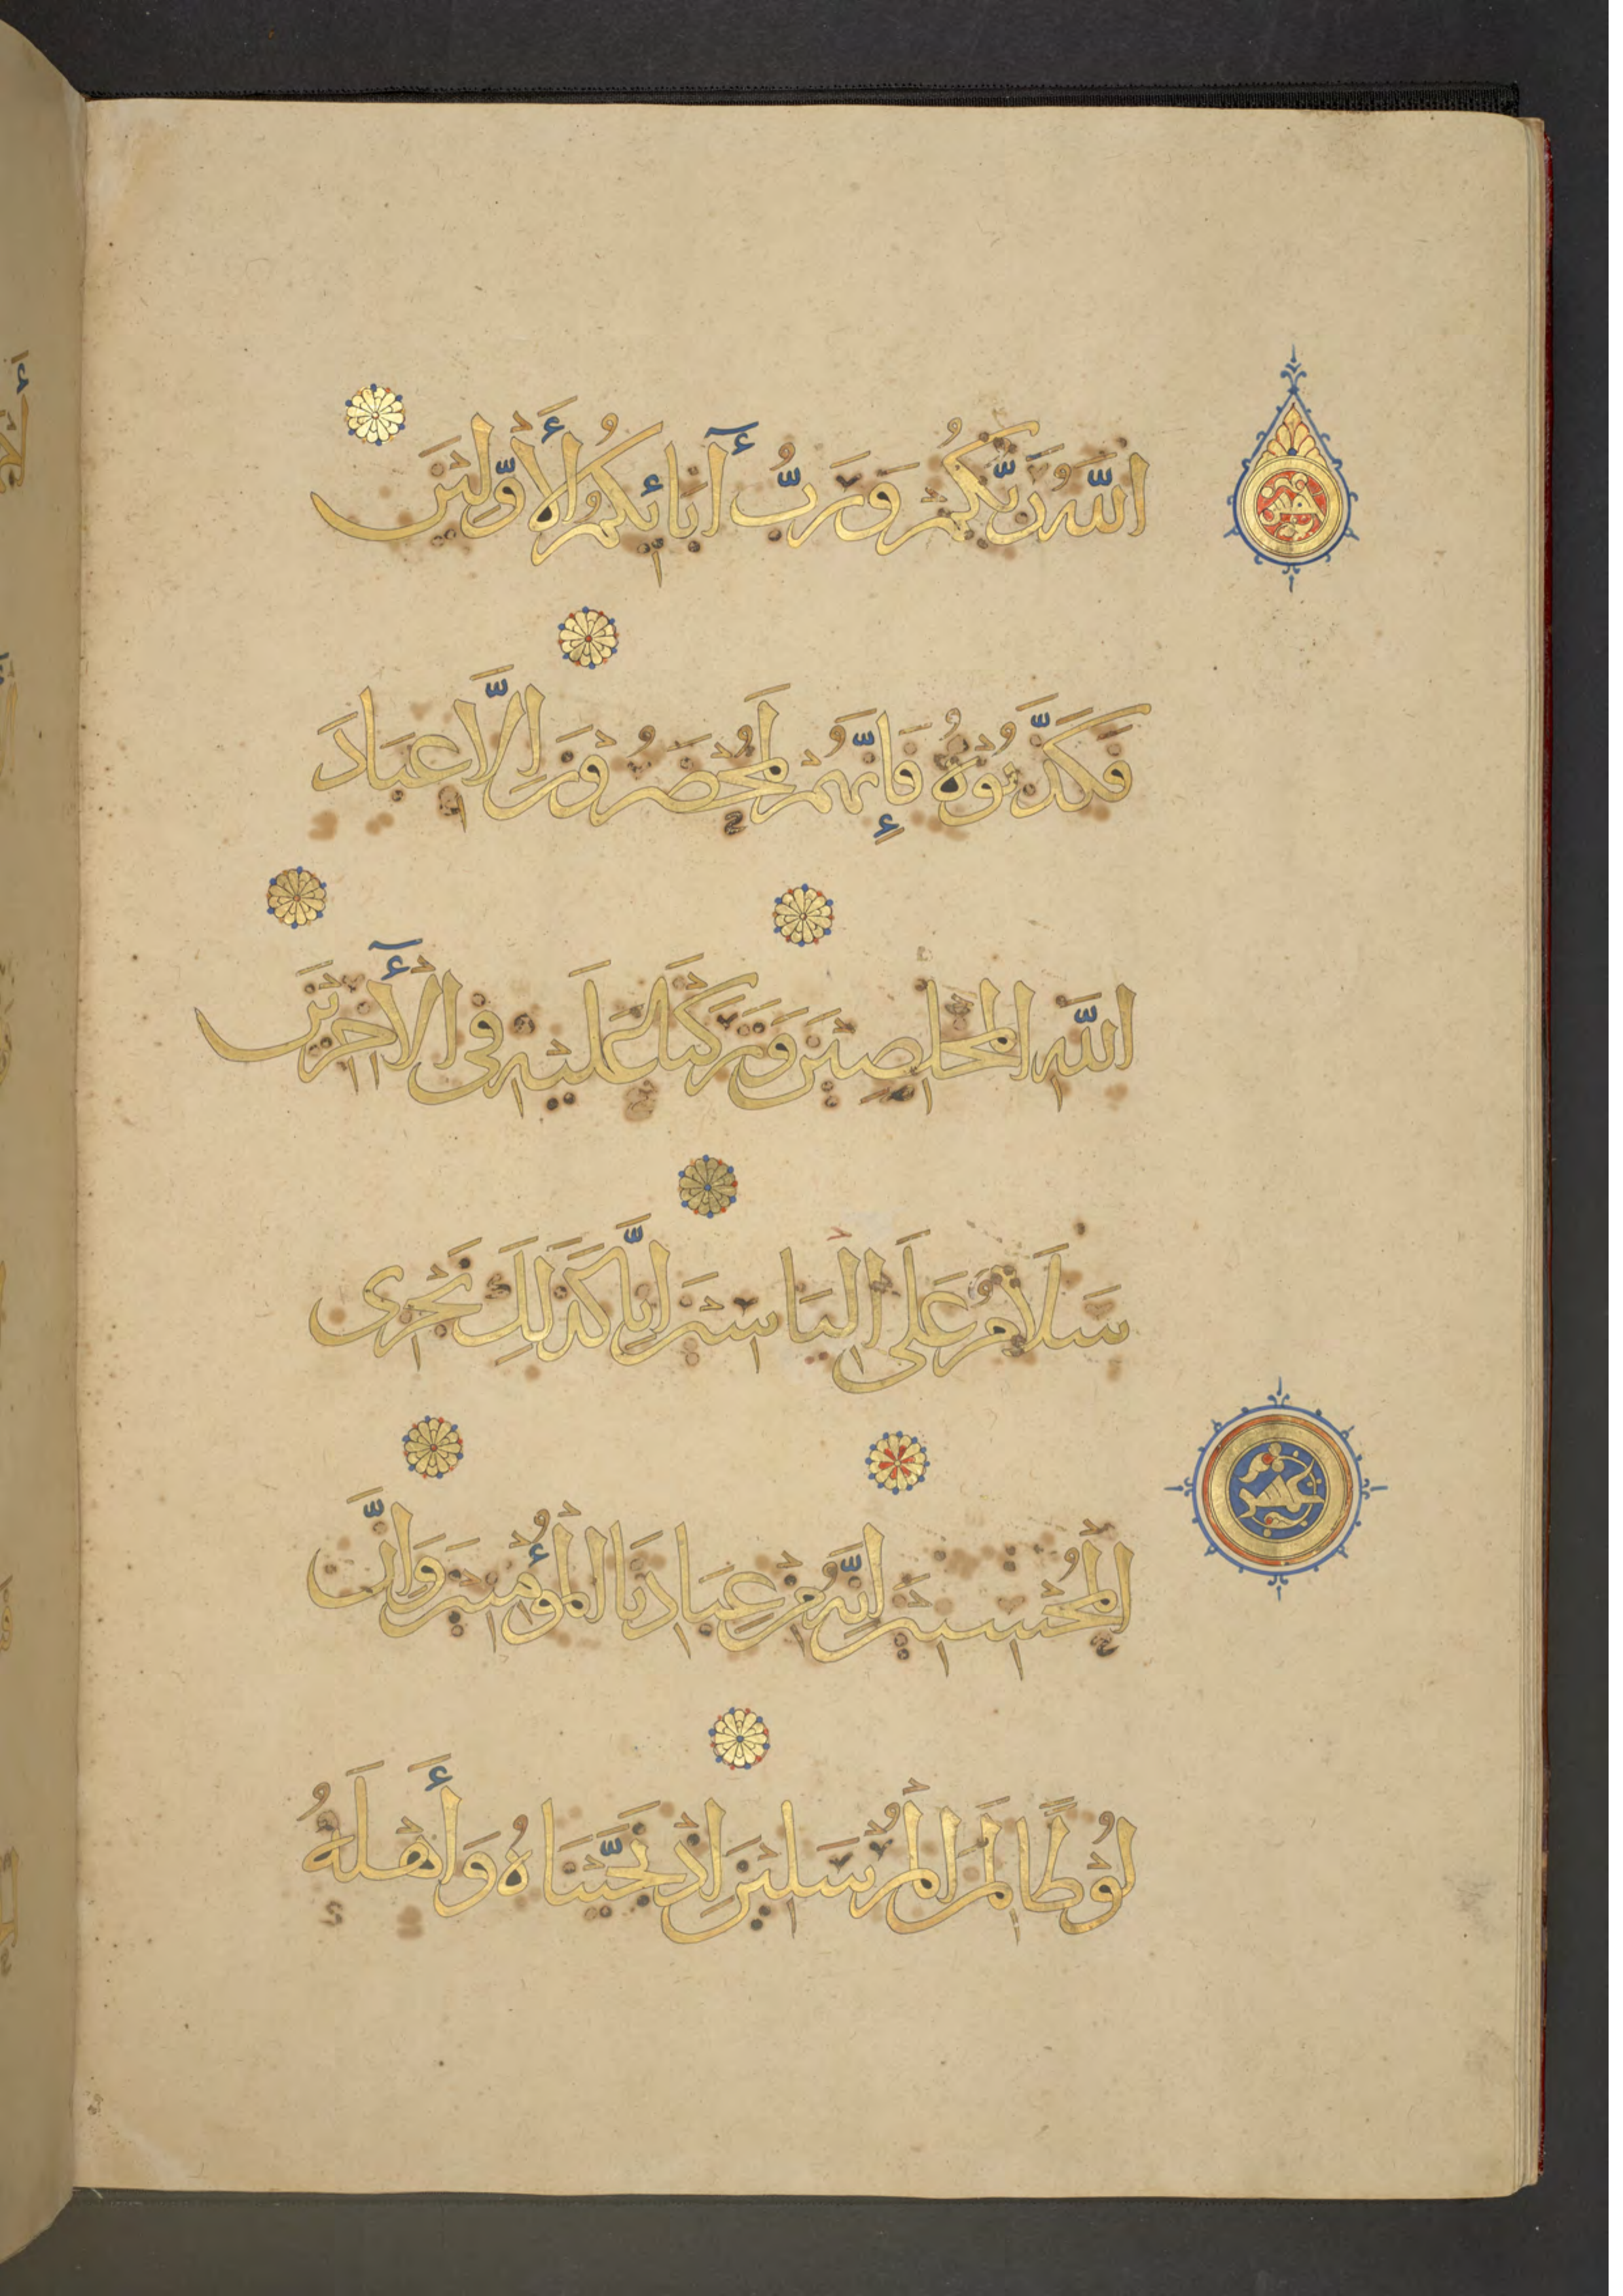 اللَّهُ رَبُّكُمْ وَرَبُّ آبَائِكُمُ الْأَوَّلِيْنَ
فَكَذَّبُوْهُ فَإِنَّهُمْ لَمُحْضَرُوْنَ اِلَّا عِبَادَ
اللَّهِ الْمُخْلَصِيْنَ وَتَرَكْنَا عَلَيْهِ فِى الْآخِرِيْنَ
سَلَامٌ عَلَى الْيَاسِيْنَ اِنَّا كَذَلِكَ نَجْزِى
الْمُحْسِنِيْنَ اِنَّهُ مِنْ عِبَادِنَا الْمُؤْمِنِيْنَ وَاِنَّ
لُوْطًا لَمِنَ الْمُرْسَلِيْنَ اِذْ نَجَّيْنَاهُ وَأَهْلَهُ
خمس
عشر